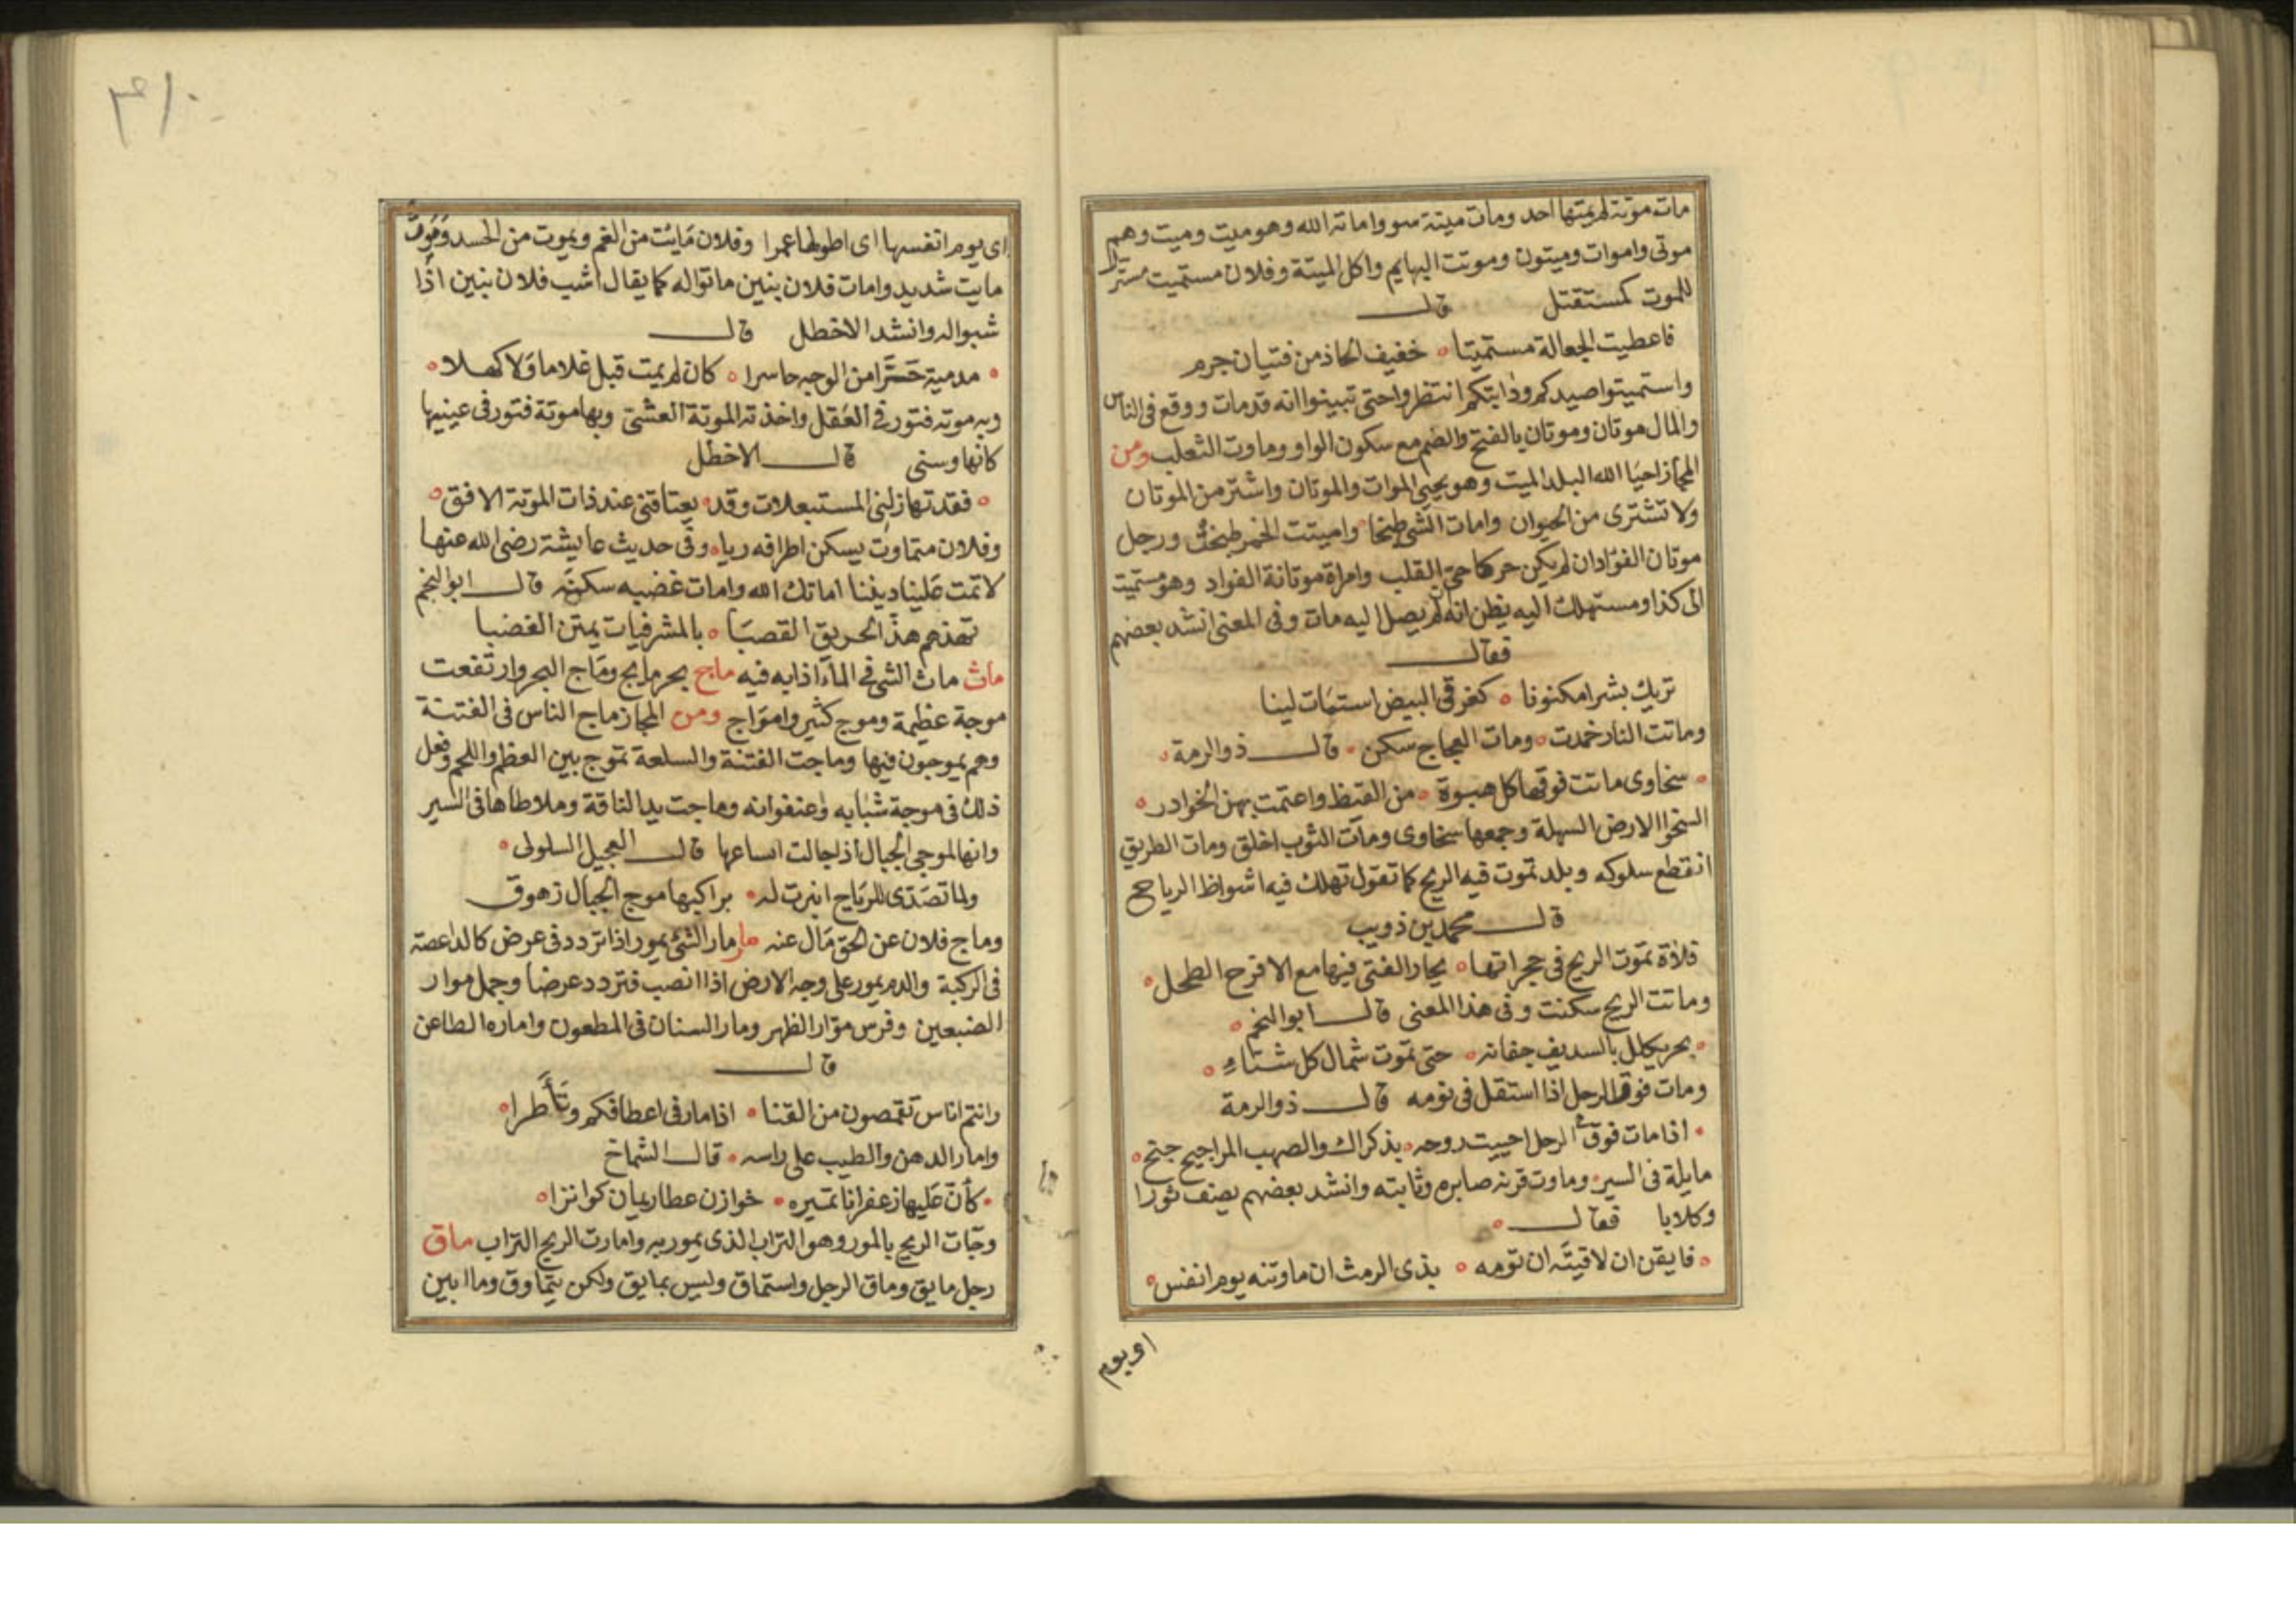 مات موتة لم يمتها احد ومات ميتة سوء واماته الله وهو ميت وميت وهم
موتى واموات وميتون وموتت البهايم واكل الميتة وفلان مستميت مسترسل
للموت كمستقتل قال
فاعطيت الجعالة مستميتا ه خفيف الحاذ من فتيان جرم
واستميتوا صيدكم ودابتكم انتظروا حتى تبينوا انه قد مات ووقع فى الناس
والمال موتان وموتان بالفتح والضم مع سكون الواو وماوت الثعلب ومن
المجاز احيا الله البلد الميت وهو يحيى الموات والموتان واشتر من الموتان
ولا تشترى من الحيوان وامات الشى طبخا واميتت الخمر طبخت ورجل
موتان الفؤاد ان لم يكن حركا حى القلب وامراة موتانة الفواد وهو مستميت
الى كذا ومستهلك اليه يظن انه ان لم يصل اليه مات وفى المعنى انشد بعضهم
فقال
تريك بشرا مكنونا ه كغرقى البيض استمات لينا
وماتت النار خمدت ه ومات العجاج سكن ه قال ذو الرمة ه
ه سخاوى ماتت فوقها كل هبوة ه من القيظ واعتمت بهن الخوادر ه
السخوا الارض السهلة وجمعها سخاوى ومات الثوب اخلق ومات الطريق
انقطع سلوكه وبلد تموت فيه الريح كما تقول تهلك فيه اشواظ الرياح
قال محمد بن ذويب
فلاة تموت الريح فى حجراتها ه يحار الفتى فيها مع الاقرح الطحل ه
وماتت الريح سكنت وفى هذا المعنى قال ابو النجم ه
ه بحر يكلل بالسديف جفانه ه حتى تموت شمال كل شتاء ه
ومات فوق الرجل اذا استقل فى نومه قال ذو الرمة
ه اذا مات فوق الرجل احييت روحه ه بذكراك والصهب المراجيح جنح ه
مايلة فى السير ه وماوت قرنه صابره وثابته وانشد بعضهم يصف ثورا
وكلابا فقال ه
ه فايقن ان لاقيته ان نومه ه بذى الرمث ان ماوتنه يوم انفس ه
اويوم
اى يوم انفسها اى اطولها عمرا وفلان مايت من الغم ويموت من الحسد وموت
مايت شديد وامات فلان بنين ماتوا له كما يقال اشب فلان بنين اذا
شبوا له وانشد الاخطل قال
ه مدمية حسرا من الوجه حاسرا ه كان لم يمت قبل غلاما ولا كهلا ه
وبه موتة فتور فى العقل واخذته الموتة العشى وبها موتة فتور فى عينيها
كانها وسنى قال الاخطل
ه فقد تهازلنى المستبعلات وقد ه يعتاقنى عند ذات الموتة الافق ه
وفلان متماوت يسكن اطرافه رياء وفى حديث عايشة رضى الله عنها
لا تمت علينا ديننا اماتك الله وامات غضبه سكنه قال ابو النجم
تهذهم هذ الحريق القصبا ه بالمشرفيات يمتن الغضبا
ماث ماث الشى فى الماء اذابه فيه ماج بحر مايج وماج البحر وارتفعت
موجة عظيمة وموج كثير وامواج ومن المجاز ماج الناس فى الفتنة
وهم يموجون فيها وماجت الفتنة والسلعة تموج بين العظم واللحم وفعل
ذلك فى موجة شبابه وعنفوانه وماجت يد الناقة وملاطاها فى السير
وانها لموجى الحبال اذا جالت انساعها قال العجيل السلولى ه
ولما تصدى للرياح انبرت له ه براكبها موج الحبال زهوق
وماج فلان عن الحق مال عنه مار مار الشئ يمور اذا تردد فى عرض كالداعصة
فى الركبة والدم يمور على وجه الارض اذا انصب فتردد عرضا وجمل موار
الضبعين وفرس موار الظهر ومار السنان فى المطعون واماره الطاعن
قال
وانتم اناس تقمصون من القنا ه اذا مار فى اعطافكم وتأطرا ه
وامار الدهن والطيب على راسه ه قال الشماخ
ه كأن عليها زعفرانا تميره ه خوازن عطار يمان كوانزا ه
وجات الريح بالمور وهو التراب الذى يمور به وامارت الريح التراب ماق
رجل مايق وماق الرجل واستماق وليس بمايق ولكن يتماوق وما ابين